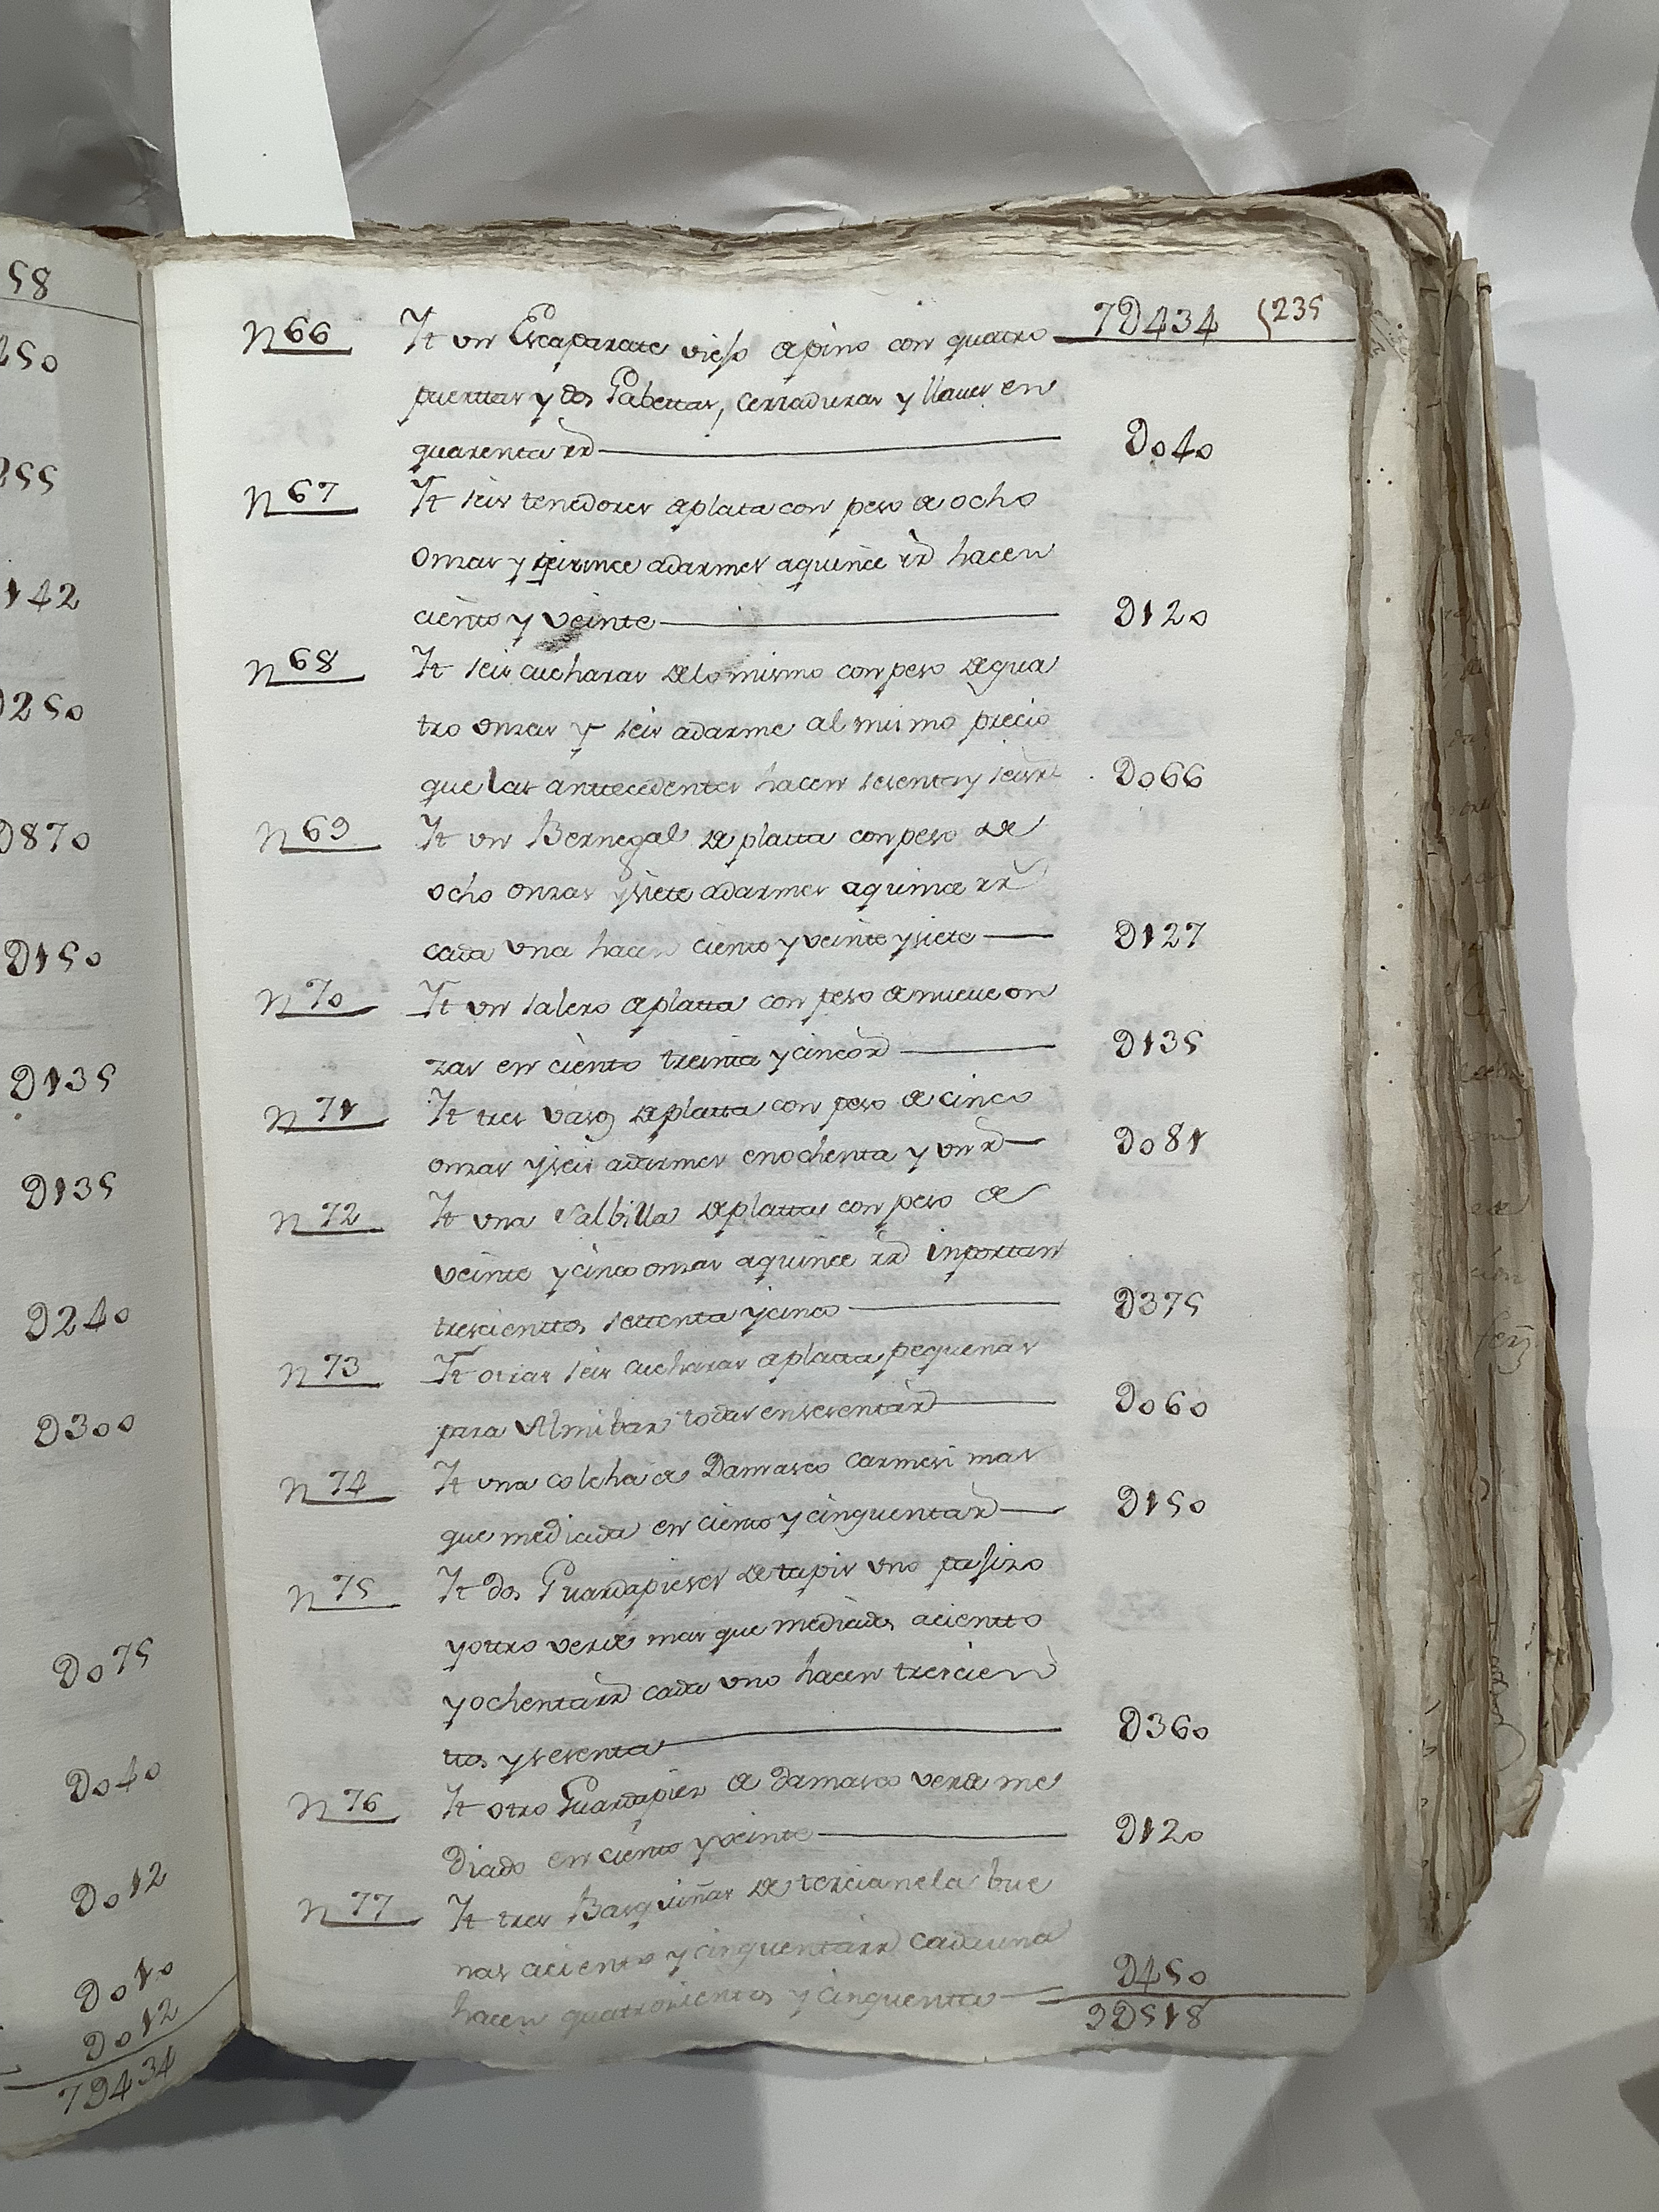 58
250
255
142
D250
D870
D150
D135
D135
D240
D300
D075
D040
D012
D010
D012
7D434
7D434 (235
n 66 It un Escaparate viejo de pino con quatro
puerttas y dos Gabettas, cerraduras y llaves en
quarenta rs D040
n 67 It seis tenedores de plata con peso de ocho
onzas y adarmes a quince rs hacen
ciento y veinte D120
n 68 It seis cucharas de lo mismo con peso de qua
tro onzas y seis adarme al mismo precio
que las anttecedentes hacen sesenta y seis rs D066
n 69 It un Bernegal de platta con peso de
ocho onzas y siete adarmes a quince rs
cada una hacen ciento y veinte y siete D127
n 70 It un salero de platta con peso de nueve on
zas en ciento treinta y cinco rs D135
n 71 It tres vasos de platta con peso de cinco
onzas y seis adarmes en ochenta y un rs D081
n 72 It una Salbilla de platta con peso de
veinte y cinco onzas a quince rs importan
trescienttos settenta y cinco D375
n 73 It otras seis cucharas de platta pequeñas
para Almibar todas en sesenta rs D060
n 74 It una colcha de Damasco carmesi mas
que mediada en ciento y cinquenta rs D150
n 75 It dos Guardapieses de tapis uno pajizo
y ottro verde mas que mediados a cientto
y ochenta rs cada uno hacen trescien
ttos y sesenta D360
n 76 It otro Guardapies de damasco verde me
diado en ciento y veinte D120
n 77 It tres Basquiñas de tercianela bue
nas a ciento y cinquenta rs cada una
hacen quatrocientos y cinquenta D450
9D518